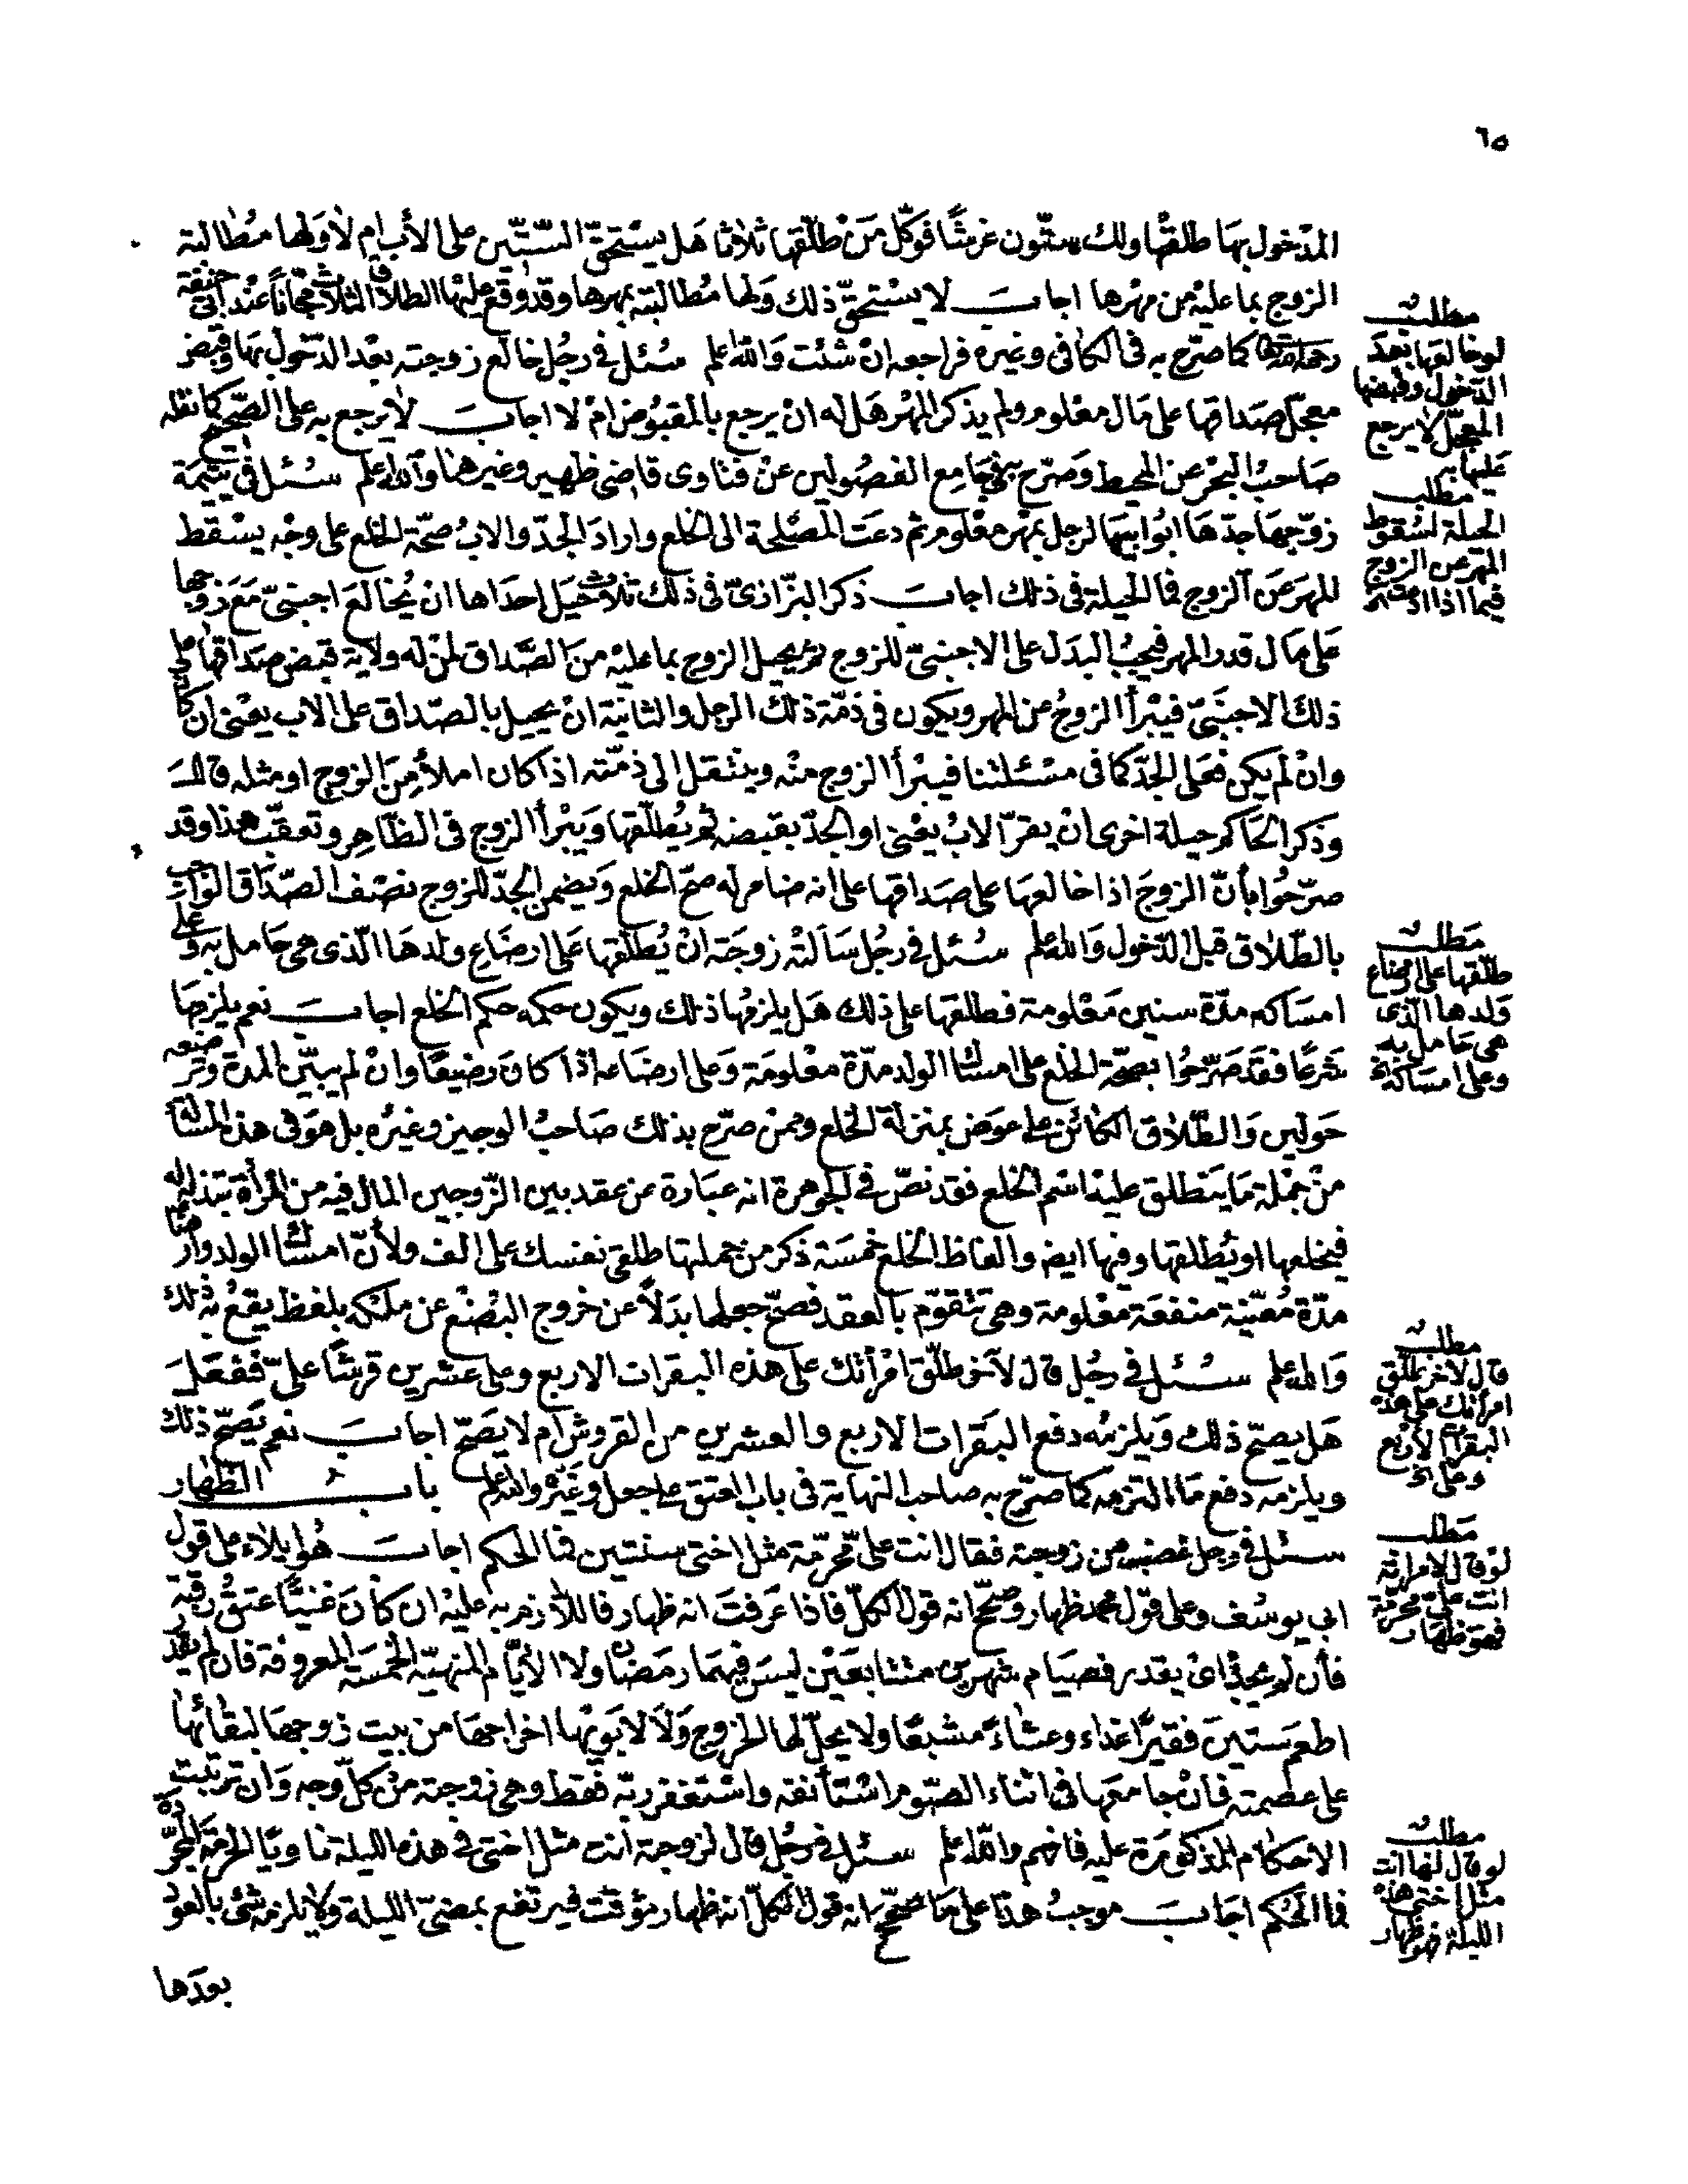 ٦٥
المدخول بها طلقها ولك ستون غرشًا فوكّل مَن طلّقها ثلاثا هل يستحقّ الستّين على الأب ام لا ولها مطالبة
الزوج بما عليه من مهرها اجاب لا يستحقّ ذلك ولها مطالبته بمهرها وقد وقع عليها الطلاق الثلاث مجّانًا عند ابى حنيفة
رحمه الله كما صرّح به فى الكافى وغيره فراجعه ان شئت والله اعلم سئل في رجل خالع زوجته بعد الدخول بها وقبض
معجّل صداقها على مال معلوم ولم يذكر المهر هل له ان يرجع بالمقبوض ام لا اجاب لا يرجع به على الصحيح كما نقله
صاحب البحر عن المحيط وصرّح به في جامع الفصولين عن فتاوى قاضى ظهير وغيرها والله اعلم سئل في يتيمة
زوّجها جدّها ابو ابيها لرجل بمهر معلوم ثم دعت المصلحة الى الخلع واراد الجدّ والاب صحّة الخلع على وجه يسقط
المهر عن الزوج فما الحيلة فى ذلك اجاب ذكر البزّازىّ فى ذلك ثلاث حيل احداها ان يخالع اجنبىّ مع زوجها
على مال قدر المهر فيجب البدل على الاجنبىّ للزوج ثم يحيل الزوج بما عليه من الصّداق لمن له ولاية قبض صداقها على
ذلك الاجنبىّ فيبرأ الزوج عن المهر ويكون فى ذمّة ذلك الرجل والثانية ان يحيل بالصّداق على الاب يعنى ان كان
وان لم يكن فعلى الجدّ كما فى مسئلتنا فيبرأ الزوج منه وينتقل الى ذمّته اذا كان املأ من الزوج او مثله قال
وذكر الحاكم حيلة اخرى ان يقرّ الاب يعنى او الجدّ بقبضه ثم يطلّقها ويبرأ الزوج فى الظاهر وتعقّب هذا وقد
صرّحوا بأنّ الزوج اذا خالعها على صداقها على انه ضامن له صحّ الخلع ويضمن الجدّ للزوج نصف الصّداق الواجب
بالطّلاق قبل الدّخول والله اعلم سئل في رجل سالته زوجته ان يطلّقها على ارضاع ولدها الّذى هى حامل به وعلى
امساكه مدّة سنين معلومة فطلقها على ذلك هل يلزمها ذلك ويكون حكمه حكم الخلع اجاب نعم يلزمها
شرعًا فقد صرّحوا بصحّة الخلع على امساك الولد مدّة معلومة وعلى ارضاعه اذا كان رضيعًا وان لم يبيّن المدة وترضعه
حولين والطّلاق الكائن على عوض بمنزلة الخلع وممن صرّح بذلك صاحب الوجيز وغيره بل هو فى هذه المسئلة
من جملة ما ينطلق عليه اسم الخلع فقد نصّ فى الجوهرة انه عبارة عن عقد بين الزّوجين المال فيه من المرأة تبذله
فيخلعها او يطلقها وفيها ايض والفاظ الخلع خمسة ذكر من جملتها طلقى نفسك على الف ولأنّ امساك الولد وارضاعه
مدّة معيّنة منفعة معلومة وهى تتقوّم بالعقد فصحّ جعلها بدلاً عن خروج البضع عن ملكه بلفظ يقع به ذلك
والله اعلم سئل في رجل قال لآخر طلّق امرأتك على هذه البقرات الاربع وعلى عشرين قرشًا علىّ ففعل
هل يصحّ ذلك ويلزمه دفع البقرات الاربع والعشرين من القروش ام لا يصحّ اجاب نعم يصحّ ذلك
ويلزمه دفع ما التزمه كما صرّح به صاحب النهاية فى باب العتق على جعل وغيره والله اعلم باب الظهار
سئل في رجل غضب من زوجته فقال انت علىّ محرّمة مثل اختى سنتين فما الحكم اجاب هو ايلاء على قول
ابى يوسف وعلى قول محمد ظهار وصحّح انه قول الكلّ فاذا عرفت انه ظهار فاللازم به عليه ان كان غنيًّا عتق رقبة
فأن لم يجد اى يقدر فصيام شهرين متتابعين ليس فيهما رمضان ولا الأيّام المنهيّة الخمسة المعروفة فان لم يقدر
اطعم ستين فقيرًا غداء وعشاء مشبعًا ولا يحلّ لها الخروج ولا لابويها اخراجها من بيت زوجها لبقائها
على عصمته فان جامعها فى اثناء الصوم استأنفه واستغفر ربّه فقط وهى زوجته من كلّ وجه وان ترتّبت
الاحكام المذكورة عليه فافهم والله اعلم سئل في رجل قال لزوجته انت مثل اختى في هذه الليلة ناويًا الحرمة المجرّدة
فما الحكم اجاب موجب هذا على ما صحّح انه قول الكلّ انه ظهار مؤقت فيرتفع بمضىّ الليلة ولا يلزمه شئ بالعود
بعدها
مطلب
لو خالعها بعد
الدخول وقبضها
المعجّل لا يرجع
عليها به
مطلب
الحيلة لسقوط
المهر عن الزوج
فيما اذا
مطلب
طلّقها على ارضاع
ولدها الذى
هى حامل به
وعلى امساكه الخ
مطلب
قال لآخر طلّق
امرأتك على هذه
البقرات الاربع
وعلى الخ
مطلب
لو قال لامرأته
انت علىّ محرّمة
فهو ظهار
مطلب
لو قال لها انت
مثل اختى هذه
الليلة فهو ظهار